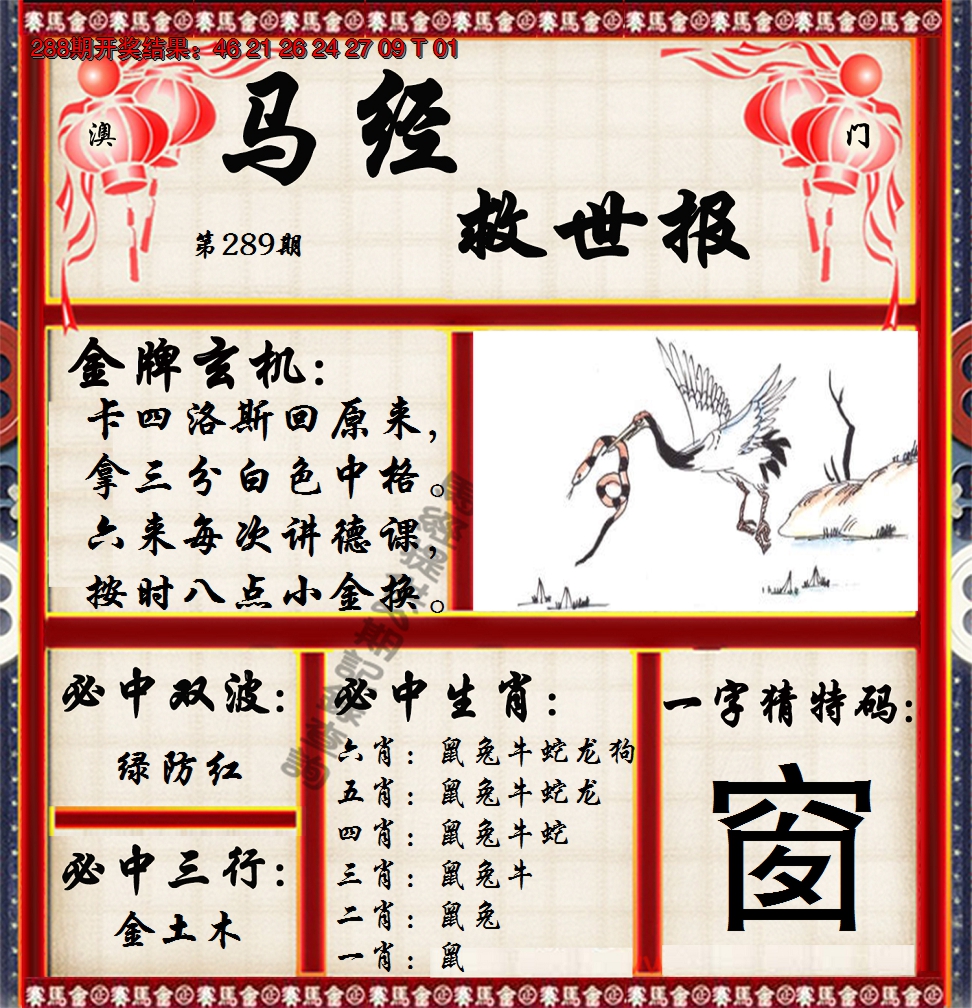 賽馬會
288期开奖结果：46 21 26 24 27 09 T 01
澳
门
马经
救世报
第289期
金牌玄机：
卡四洛斯回原来，
拿三分白色中格。
六来每次讲德课，
按时八点小金换。
必中双波：
绿防红
必中三行：
金土木
必中生肖：
六肖：鼠兔牛蛇龙狗
五肖：鼠兔牛蛇龙
四肖：鼠兔牛蛇
三肖：鼠兔牛
二肖：鼠兔
一肖：鼠
一字猜特码：
窗